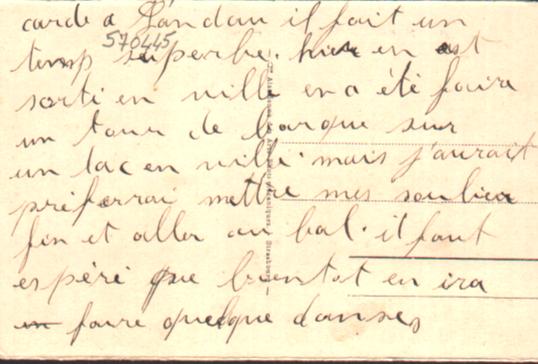 carde a Landau il fait un
570445
temp superbe. hier en est
sorti en ville en a été faire
un tour de barque sur
un lac en ville. mais j'aurait
préferrai mettre mes soulier
fin et aller au bal. il faut
espéré que bientot en ira
faire quelque danses